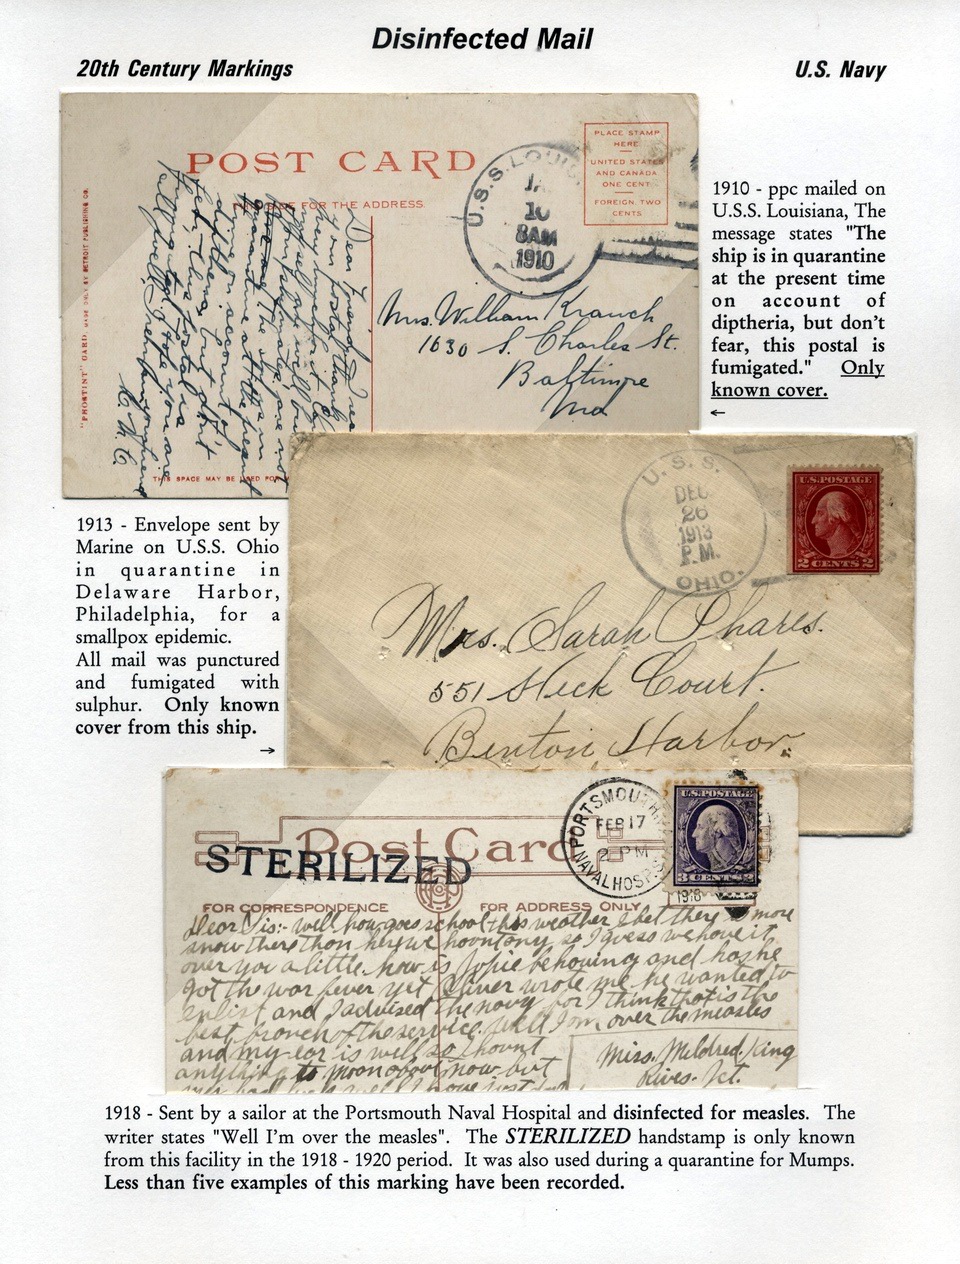 Disinfected Mail
20th Century Markings
U.S. Navy
POST CARD
FOR THE ADDRESS.
"PHOSTINT" CARD. MADE ONLY BY DETROIT PUBLISHING CO.
THIS SPACE MAY BE USED FOR
U.S.S. LOUIS
JA
10
8AM
1910
PLACE STAMP
HERE
UNITED STATES
AND CANADA
ONE CENT
FOREIGN, TWO
CENTS
Dear
your postal thanks
quarantine at the present
time on account of
diptheria but don't
fear, this postal is
Mrs. William Kranch
1630 S. Charles St.
Baltimore
Md
1910 - ppc mailed on
U.S.S. Louisiana, The
message states "The
ship is in quarantine
at the present time
on account of
diptheria, but don't
fear, this postal is
fumigated." Only
known cover.
←
1913 - Envelope sent by
Marine on U.S.S. Ohio
in quarantine in
Delaware Harbor,
Philadelphia, for a
smallpox epidemic.
All mail was punctured
and fumigated with
sulphur. Only known
cover from this ship.
→
U.S.S.
DEC
26
1913
P.M.
OHIO.
U.S. POSTAGE
2 CENTS 2
Mrs. Sarah Phares.
551 Heck Court.
Benton Harbor.
Post Card
STERILIZED
PORTSMOUTH
FEB 17
2 PM
NAVAL HOSP.
1918
U.S. POSTAGE
3 CENTS
FOR CORRESPONDENCE
FOR ADDRESS ONLY
Dear Sis:- well how goes school this weather I bet there is more
snow there than here we haont any so I guess we have it
over you a little. how is Jopie behaving and has he
got the war fever yet Oliver wrote me he wanted to
enlist and I advised the navy for I think that is the
best branch of the service. Well I am over the measles
and my ear is well so I haont
anything to moan about now but
Miss. Mildred King
Rives. Jct.
1918 - Sent by a sailor at the Portsmouth Naval Hospital and disinfected for measles. The
writer states "Well I'm over the measles". The STERILIZED handstamp is only known
from this facility in the 1918 - 1920 period. It was also used during a quarantine for Mumps.
Less than five examples of this marking have been recorded.